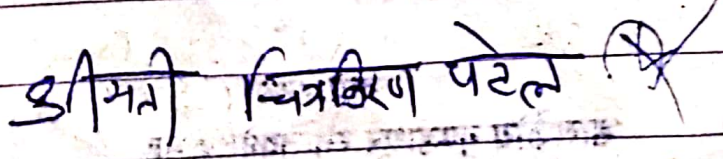 श्रीमती चित्रकिरण पटेल